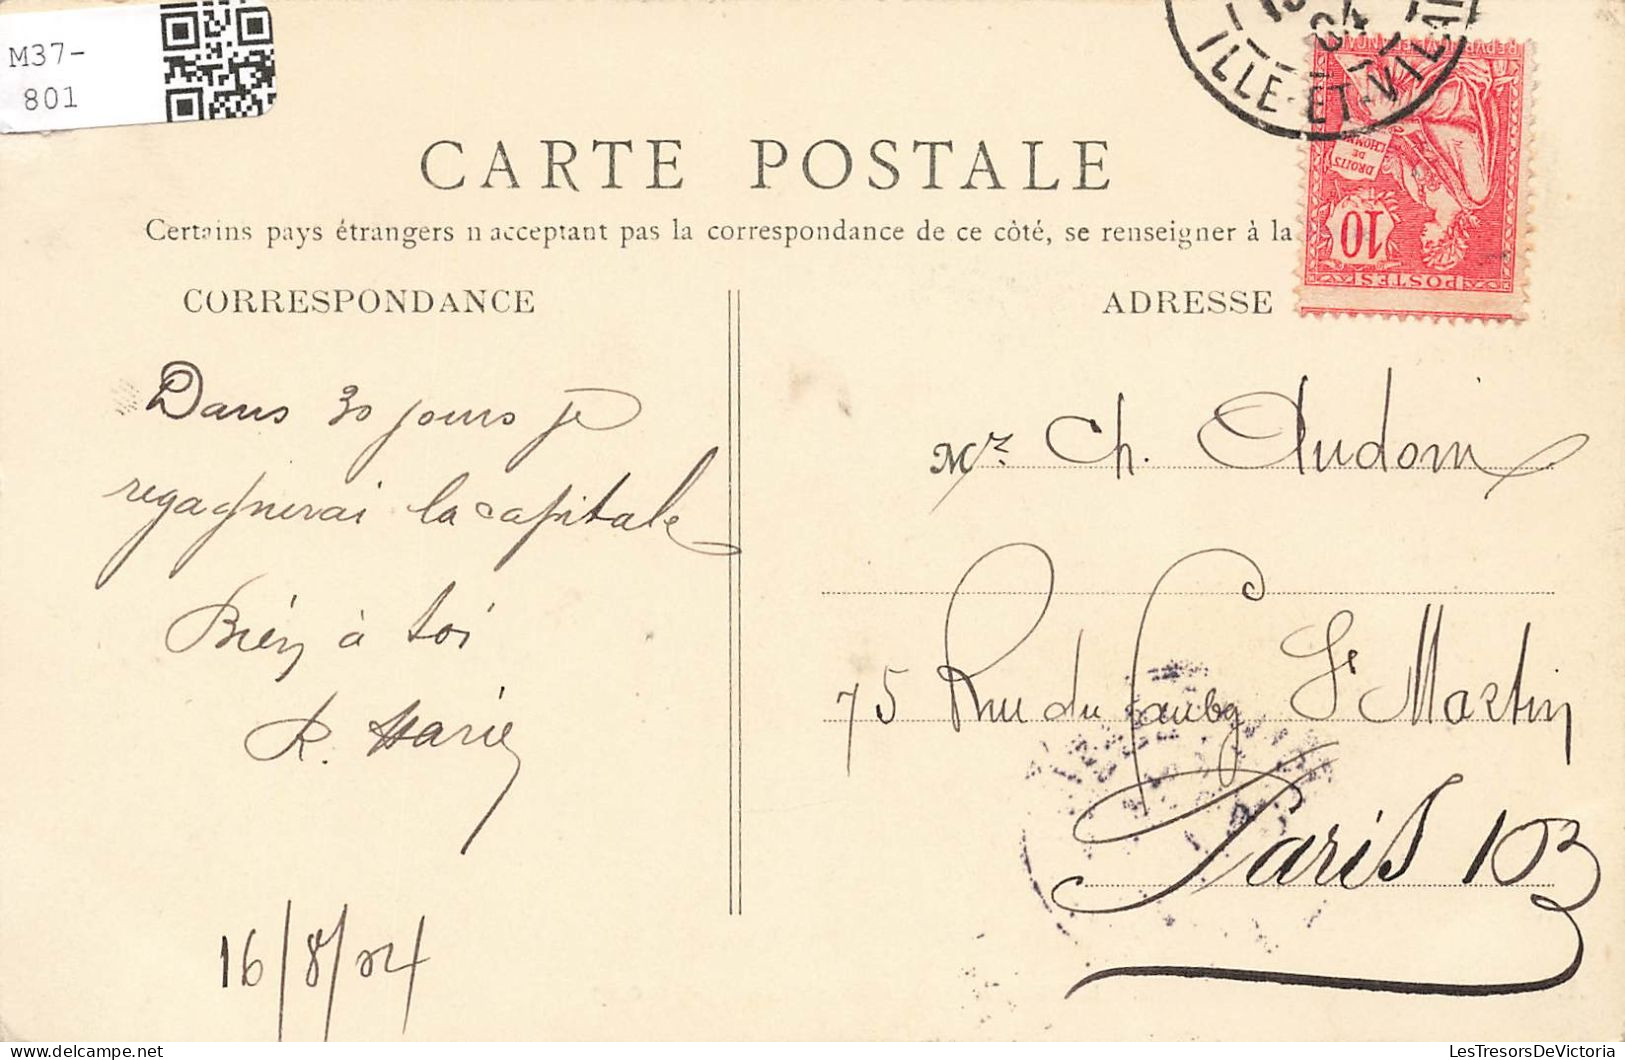 M37-
801
CARTE POSTALE
Certains pays étrangers n'acceptant pas la correspondance de ce côté, se renseigner à la
CORRESPONDANCE
ADRESSE
ILLE-ET-VILAI
REPUBLIQUE FRANCAISE
DROITS
DE
L'HOMME
10
POSTES
Dans 30 jours je
regagnerai la capitale
Bien à toi
R. Marie
16/8/04
Mr. Ch. Audoin
75 Rue du Faubg St Martin
Paris 10
LesTresorsDeVictoria